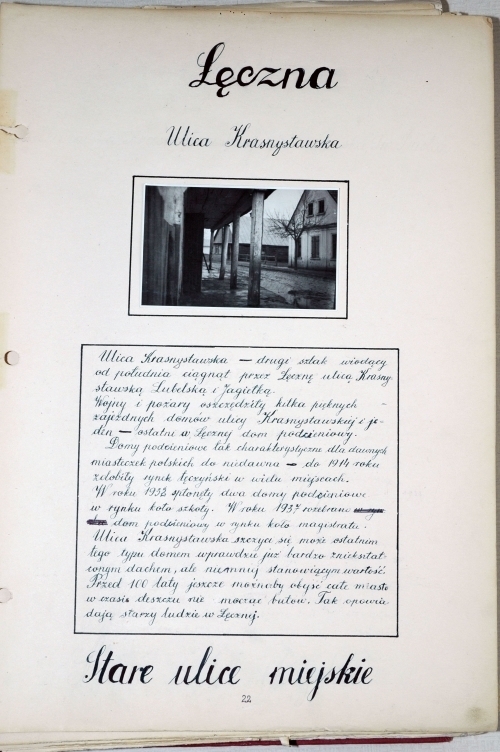 Łęczna
Ulica Krasnystawska
Ulica Krasnystawska — drugi szlak wiodący
od południa ciągnął przez Łęcznę ulicą Krasny-
stawską Lubelską i Jagiełłą.
Wojny i pożary oszczędziły kilka pięknych
zajezdnych domów ulicy Krasnystawskiej i je-
den — ostatni w Łęcznej dom podcieniowy.
Domy podcieniowe tak charakterystyczne dla dawnych
miasteczek polskich do niedawna — do 1914 roku
zdobiły rynek łęczyński w wielu miejscach.
W roku 1932 spłonęły dwa domy podcieniowe
w rynku koło szkoły. W roku 1937 rozebrano
dom podcieniowy w rynku koło magistratu.
Ulica Krasnystawska szczyci się może ostatnim
tego typu domem wprawdzie już bardzo zniekształ-
conym dachem, ale niemniej stanowiącym wartość.
Przed 100 laty jeszcze możnaby obejść całe miasto
w czasie deszczu nie mocząc butów. Tak opowia
dają starzy ludzie w Łęcznej.
Stare ulice miejskie
22